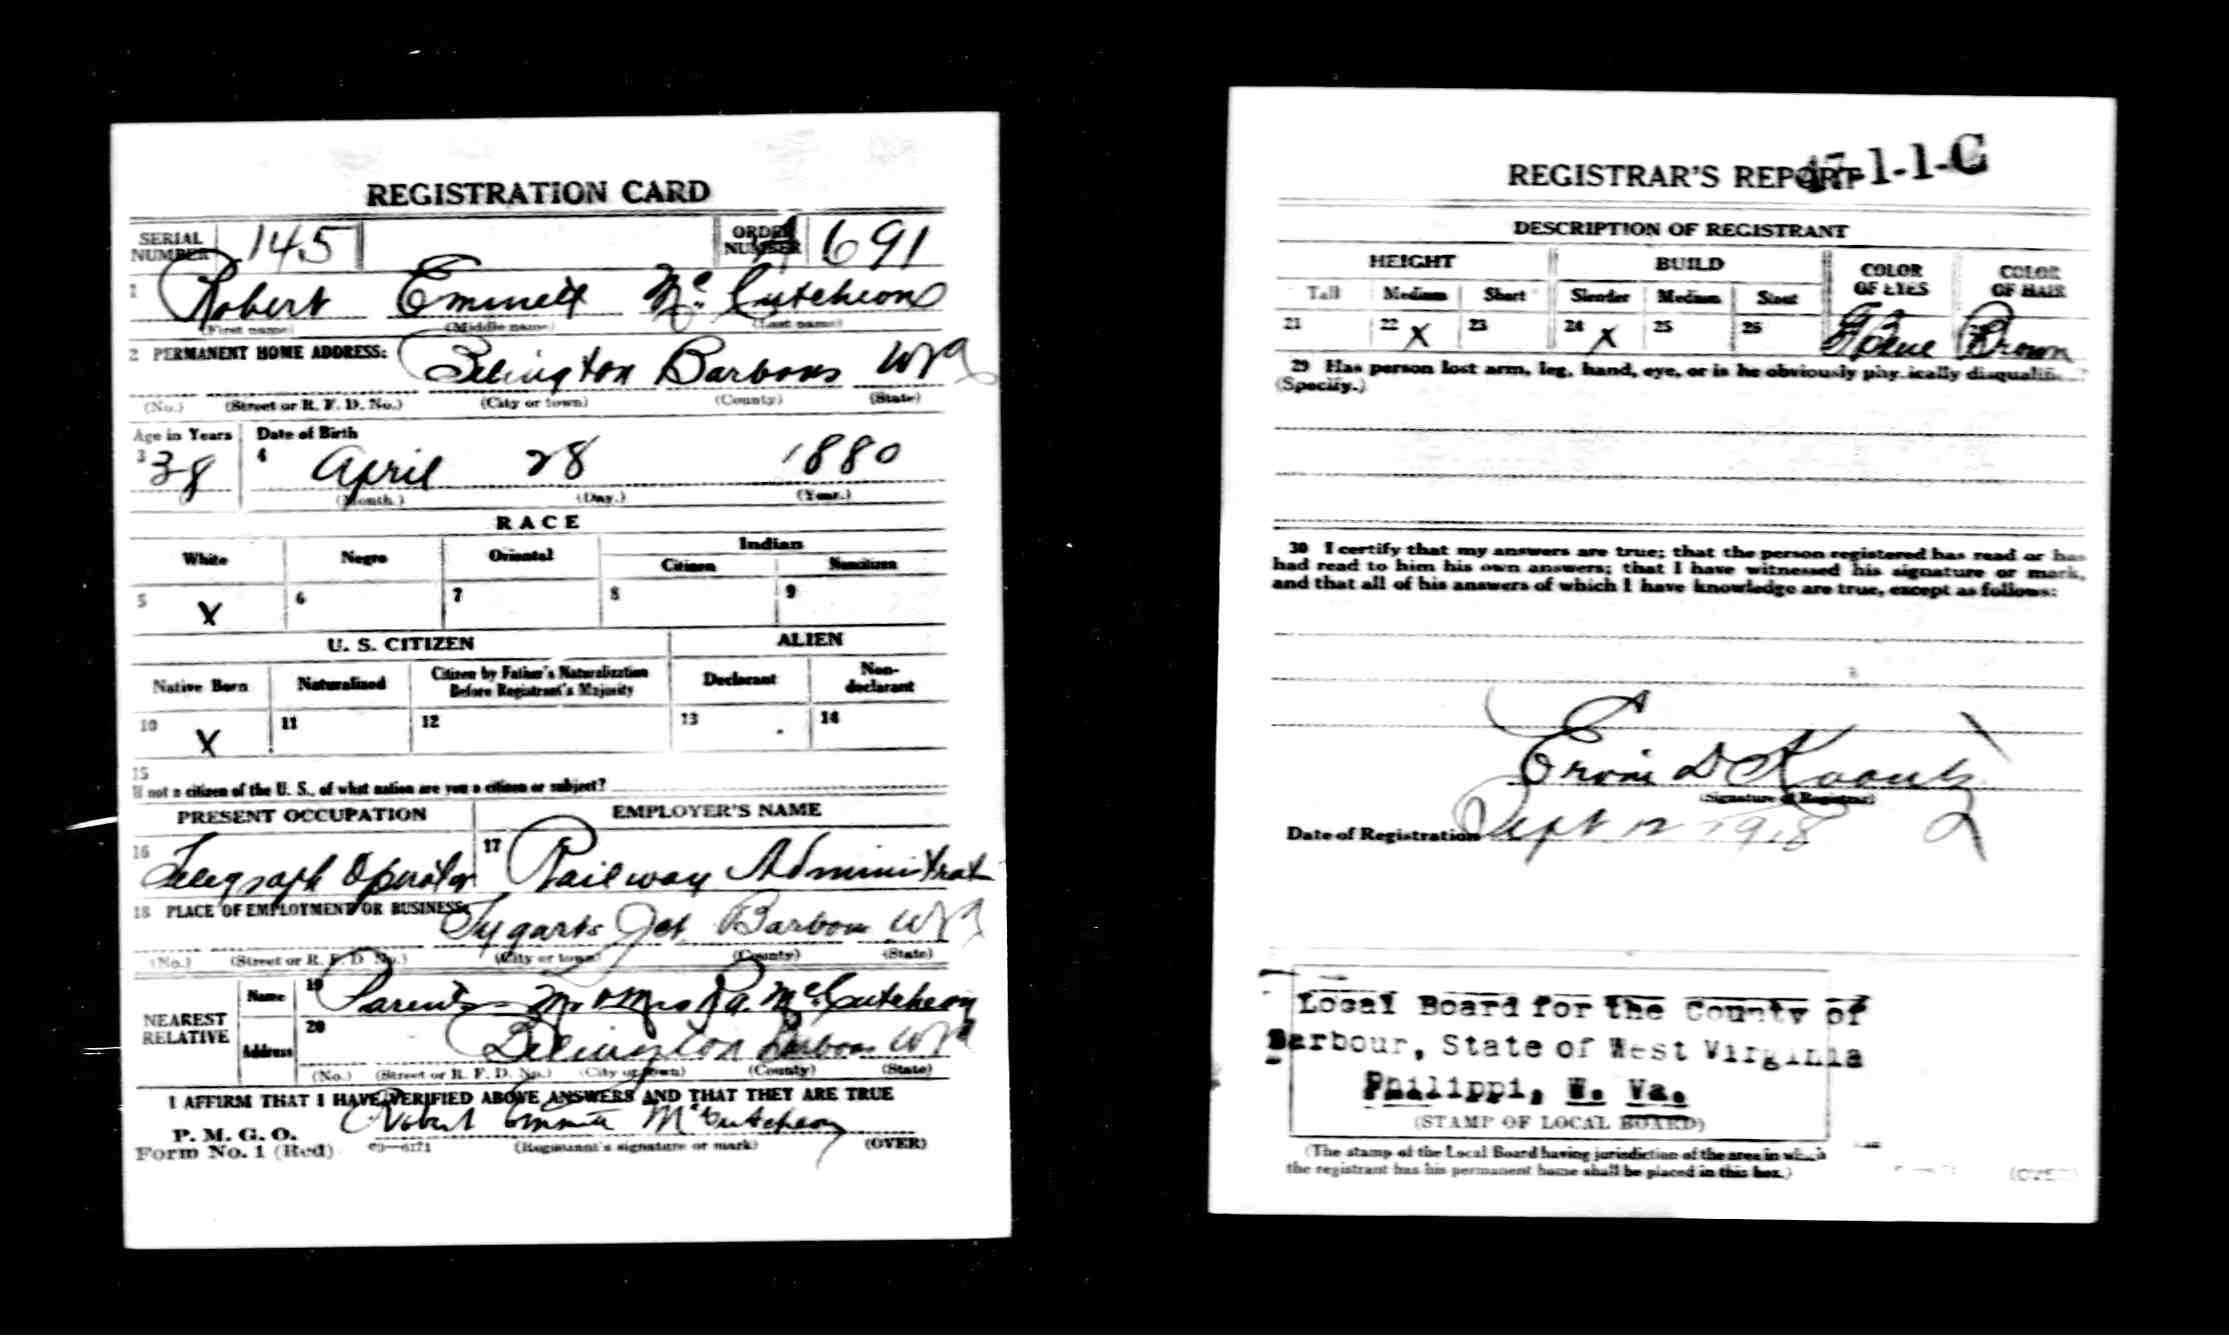 REGISTRATION CARD
SERIAL NUMBER 145 ORDER NUMBER A 691
1 Robert Emmett McCutcheon
(First name) (Middle name) (Last name)
2 PERMANENT HOME ADDRESS:
Belington Barbour W Va
(No.) (Street or R. F. D. No.) (City or town) (County) (State)
Age in Years Date of Birth
3 38 4 April 28 1880
(Month.) (Day.) (Year.)
RACE
White Negro Oriental Indian
Citizen Noncitizen
5 X 6 7 8 9
U. S. CITIZEN ALIEN
Native Born Naturalized Citizen by Father's Naturalization Before Registrant's Majority Declarant Non-declarant
10 X 11 12 13 14
15
If not a citizen of the U. S., of what nation are you a citizen or subject?
PRESENT OCCUPATION EMPLOYER'S NAME
16 Telegraph Operator 17 Railway Administrat
18 PLACE OF EMPLOYMENT OR BUSINESS:
Tygarts Jct Barbour W Va
(No.) (Street or R. F. D. No.) (City or town) (County) (State)
NEAREST RELATIVE
Name 19 Parents Mr & Mrs R.A. McCutcheon
Address 20 Belington Barbour W Va
(No.) (Street or R. F. D. No.) (City or town) (County) (State)
I AFFIRM THAT I HAVE VERIFIED ABOVE ANSWERS AND THAT THEY ARE TRUE
P. M. G. O.
Form No. 1 (Red) Robert Emmett McCutcheon
(Registrant's signature or mark) (OVER)
REGISTRAR'S REPORT 47-1-1-C
DESCRIPTION OF REGISTRANT
HEIGHT BUILD COLOR OF EYES COLOR OF HAIR
Tall Medium Short Slender Medium Stout
21 22 X 23 24 X 25 26 Blue Brown
29 Has person lost arm, leg, hand, eye, or is he obviously physically disqualified?
(Specify.)
30 I certify that my answers are true; that the person registered has read or has
had read to him his own answers; that I have witnessed his signature or mark,
and that all of his answers of which I have knowledge are true, except as follows:
D Koontz
(Signature of Registrar)
Date of Registration Sept 12 1918
Local Board for the County of
Barbour, State of West Virginia
Philippi, W. Va.
(STAMP OF LOCAL BOARD)
(The stamp of the Local Board having jurisdiction of the area in which
the registrant has his permanent home shall be placed in this box.)
(OVER)